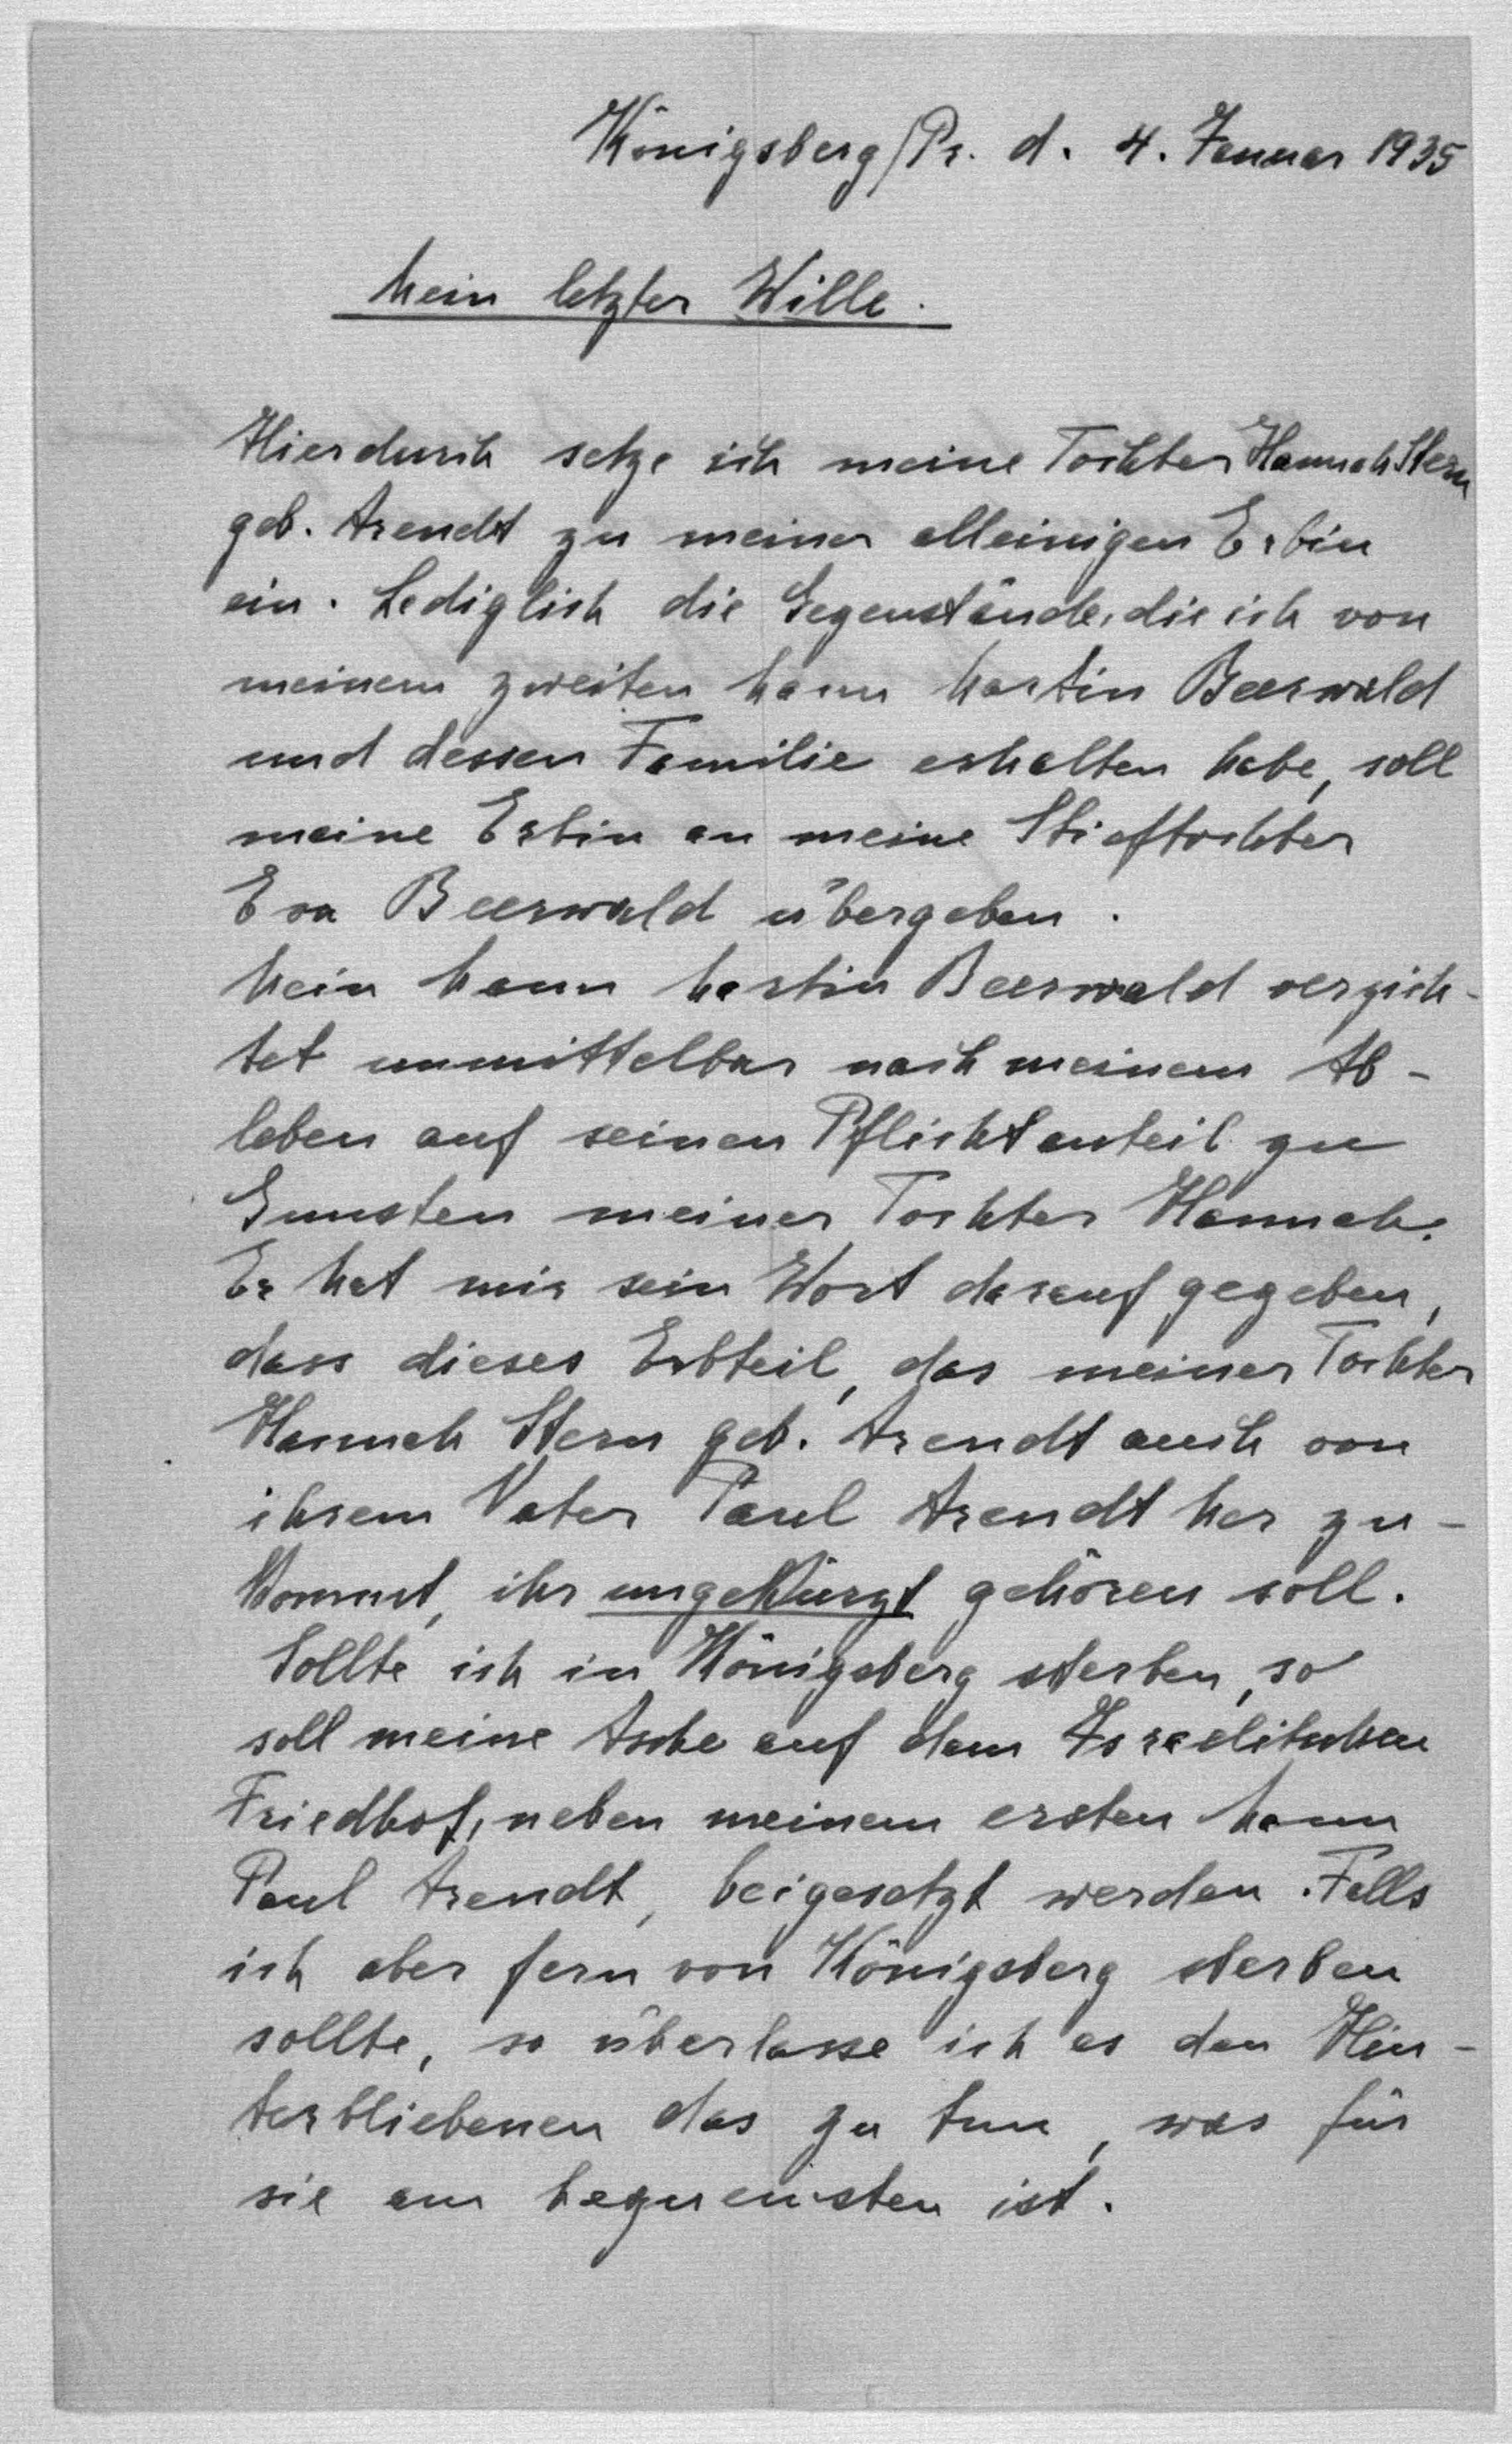 Königsberg/Pr. d. 4. Januar 1935
Mein letzter Wille.
Hierdurch setze ich meine Tochter Hannah Stern
geb. Arendt zu meiner alleinigen Erbin
ein. Lediglich die Gegenstände, die ich von
meinem zweiten Mann Martin Beerwald
und dessen Familie erhalten habe, soll
meine Erbin an meine Stieftochter
Eva Beerwald übergeben.
Mein Mann Martin Beerwald verzich-
tet unmittelbar nach meinem Ab-
leben auf seinen Pflichtanteil zu
Gunsten meiner Tochter Hannah.
Er hat mir sein Wort darauf gegeben,
dass dieses Erbteil, das meiner Tochter
Hannah Stern geb. Arendt auch von
ihrem Vater Paul Arendt her zu-
kommt, ihr ungekürzt gehören soll.
Sollte ich in Königsberg sterben, so
soll meine Asche auf dem Israelitischen
Friedhof, neben meinem ersten Mann
Paul Arendt, beigesetzt werden. Falls
ich aber fern von Königsberg sterben
sollte, so überlasse ich es den Hin-
terbliebenen das zu tun, was für
sie am bequemsten ist.